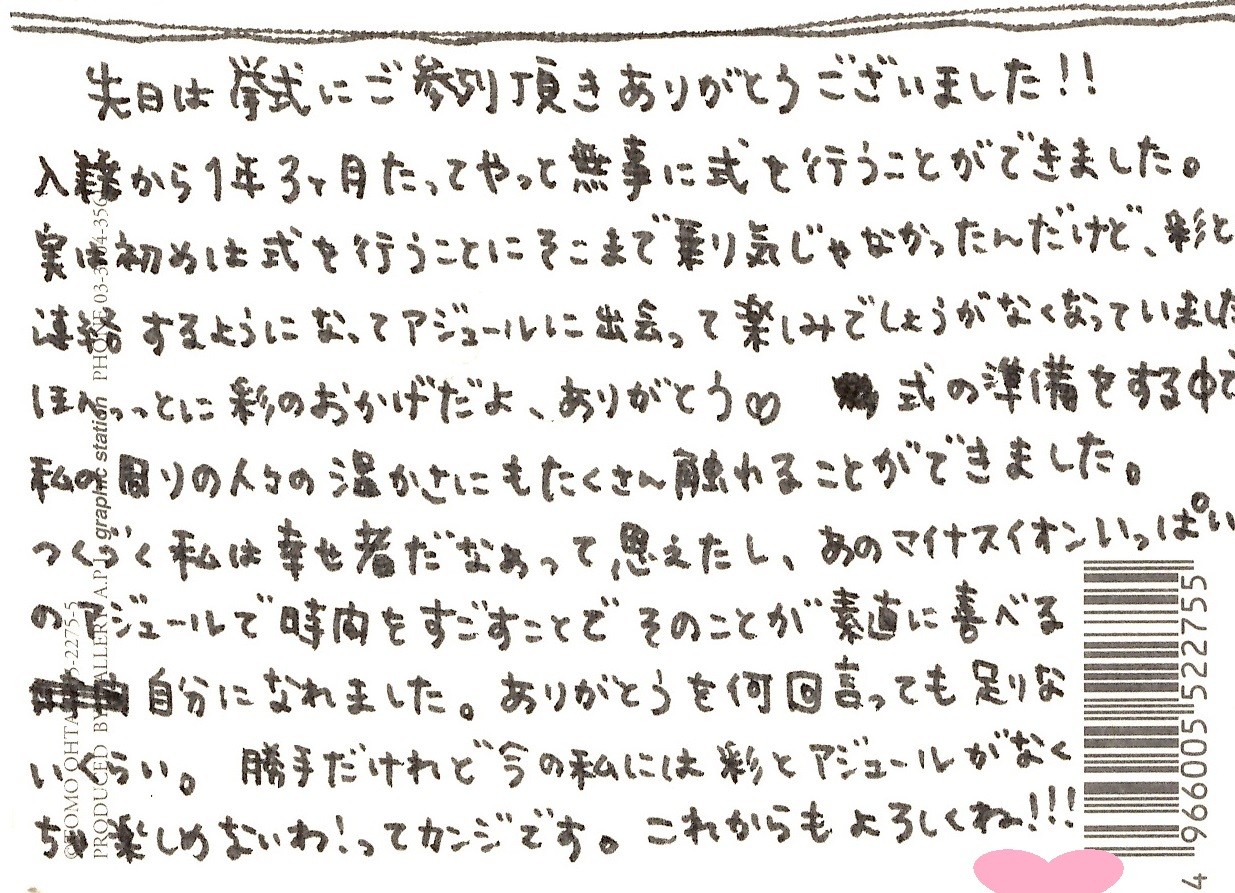 先日は挙式にご参列頂きありがとうございました!!
入籍から1年3ヶ月たってやっと無事に式を行うことができました。
実は初めは式を行うことにそこまで乗り気じゃなかったんだけど、彩と
連絡するようになってアジュールに出会って楽しみでしょうがなくなっていました
ほんっっとに彩のおかげだよ、ありがとう♡ 式の準備をする中で
私の周りの人々の温かさにもたくさん触れることができました。
つくづく私は幸せ者だなぁって思えたし、あのマイナスイオンいっぱい
のアジュールで時間をすごすことで そのことが素直に喜べる
自分になれました。ありがとうを何回言っても足りな
いくらい。 勝手だけれど今の私には彩とアジュールがなく
ちゃ楽しめないわ!ってカンジです。これからもよろしくね!!!
©TOMO OHTA 5-2275-5
PRODUCED BY GALLERY A.P.J. graphic station PHONE 03-3
4 966005 522755